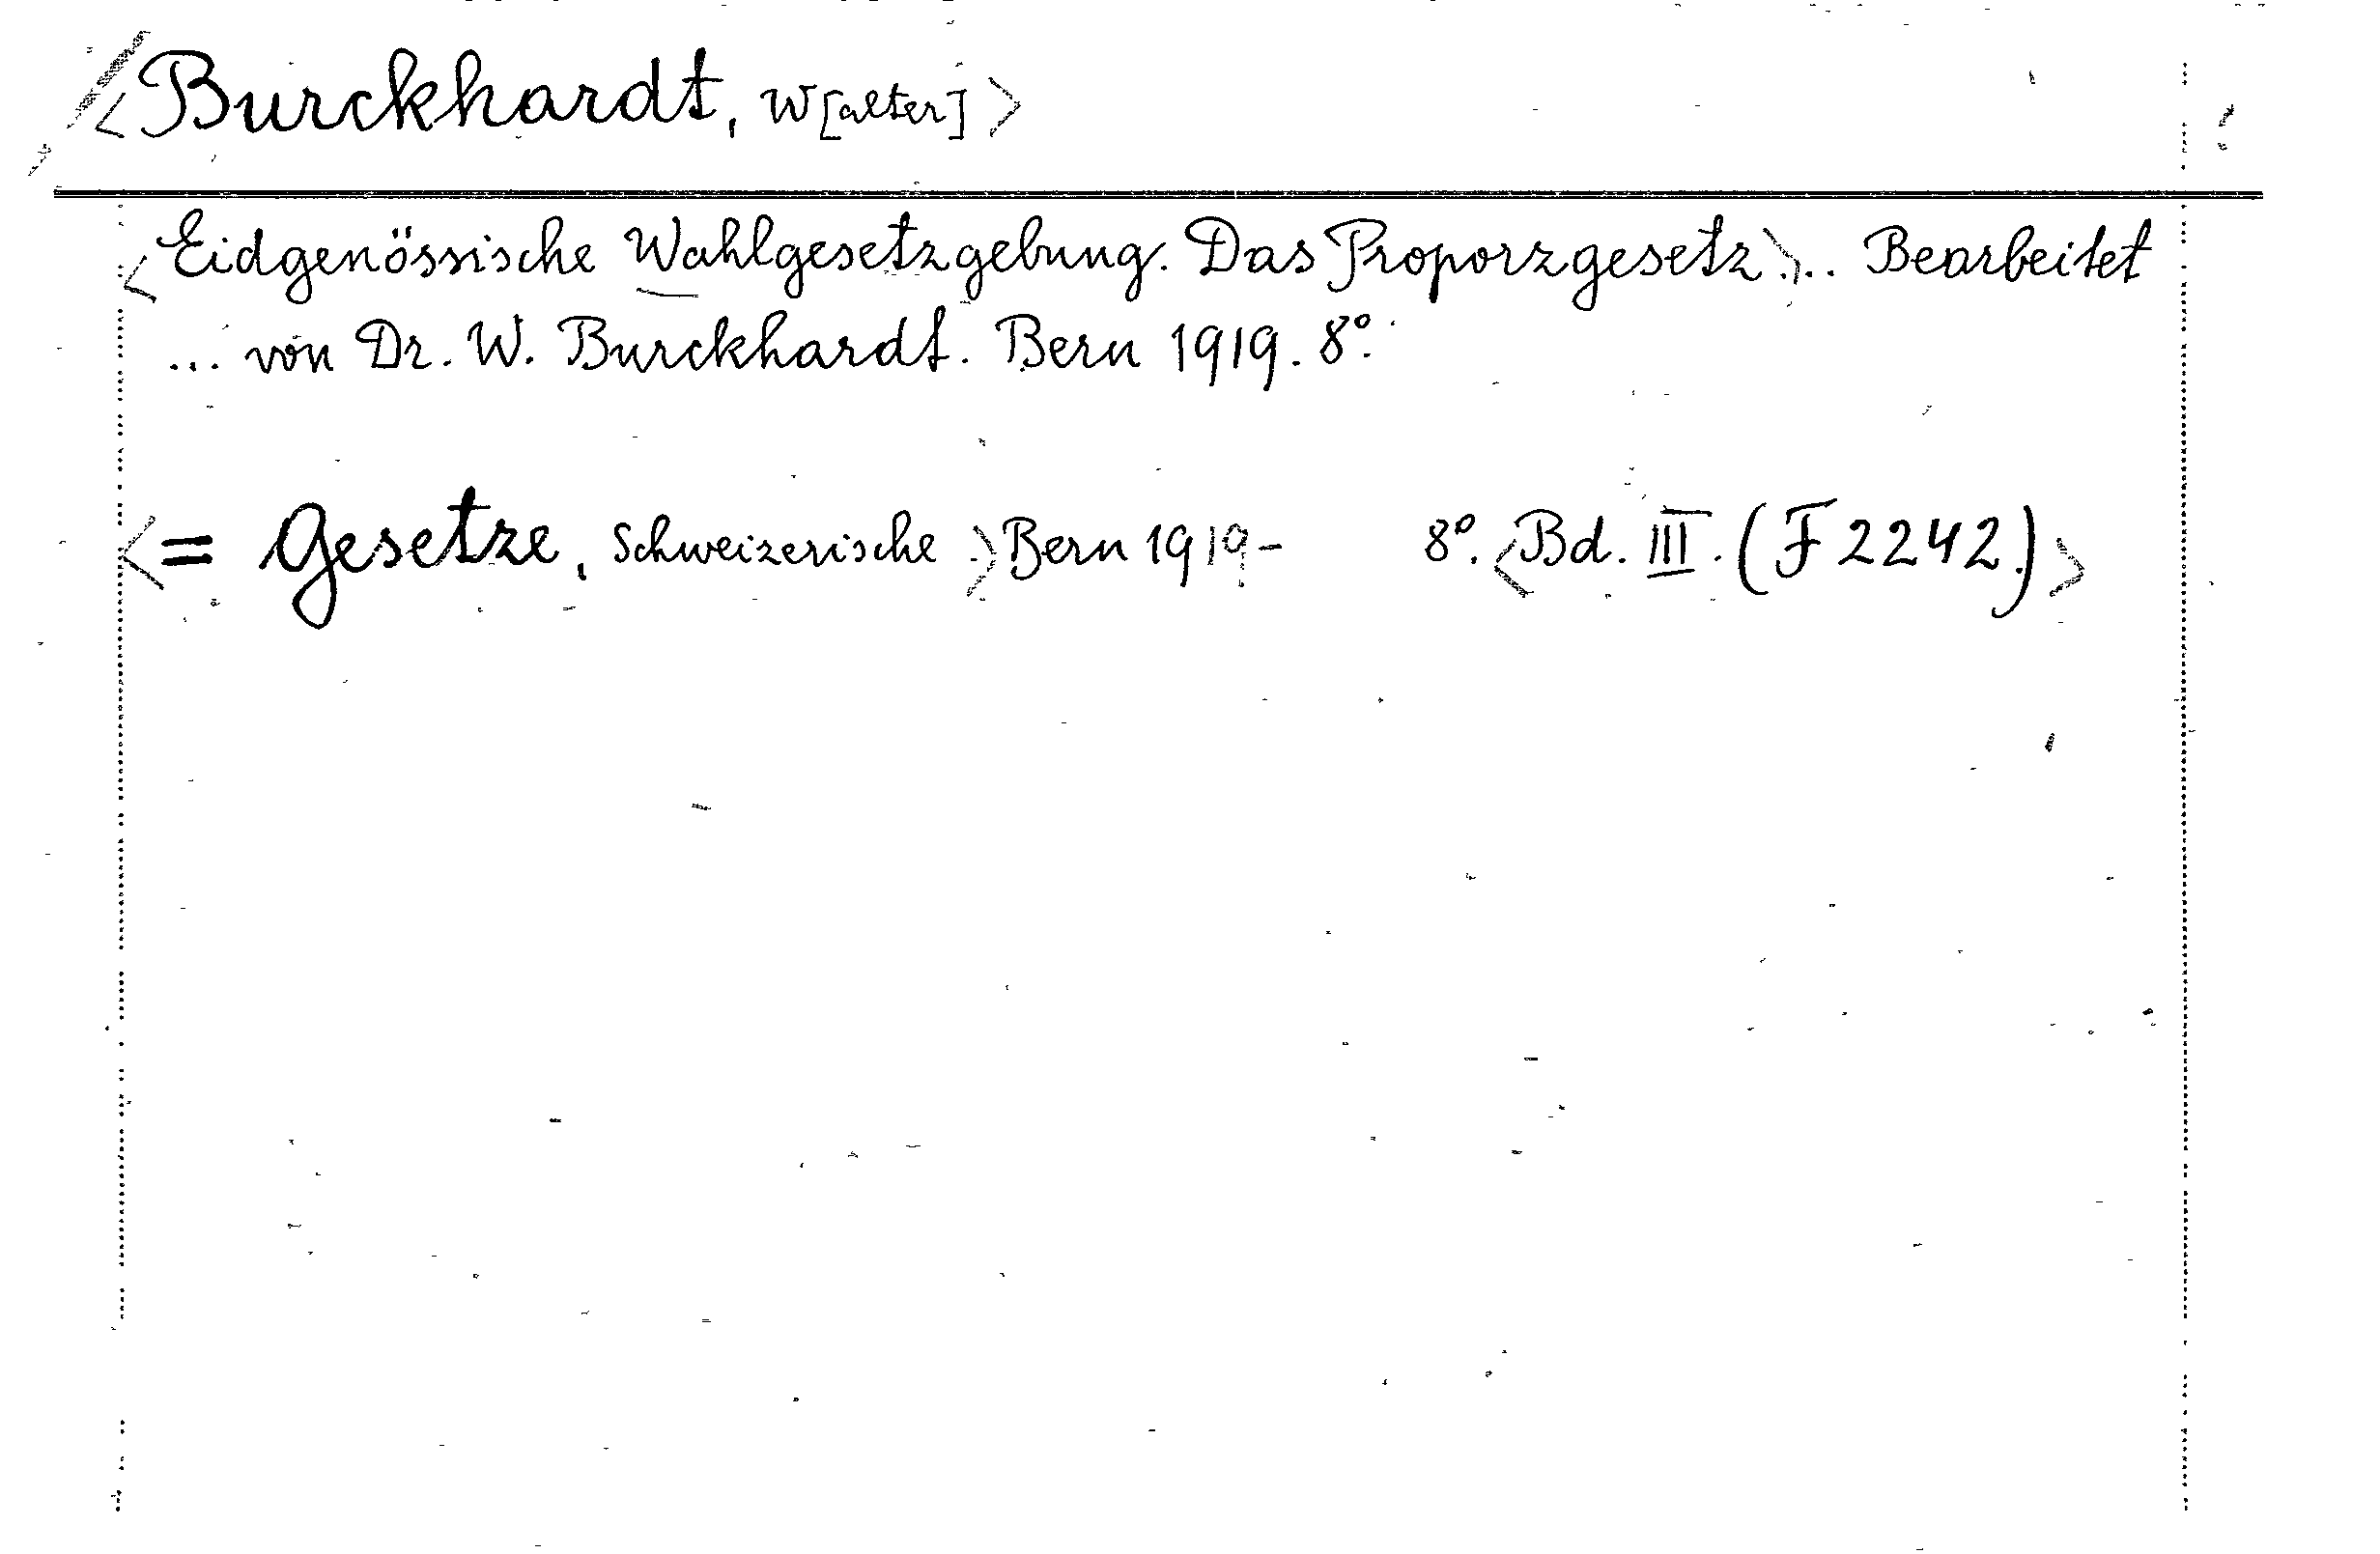 <Burckhardt, W[alter]>
<Eidgenössische Wahlgesetzgebung. Das Proporzgesetz>... Bearbeitet
... von Dr. W. Burckhardt. Bern 1919. 8°.
<= Gesetze, Schweizerische.> Bern 1919- 8°. <Bd. III. (F 2242.)>